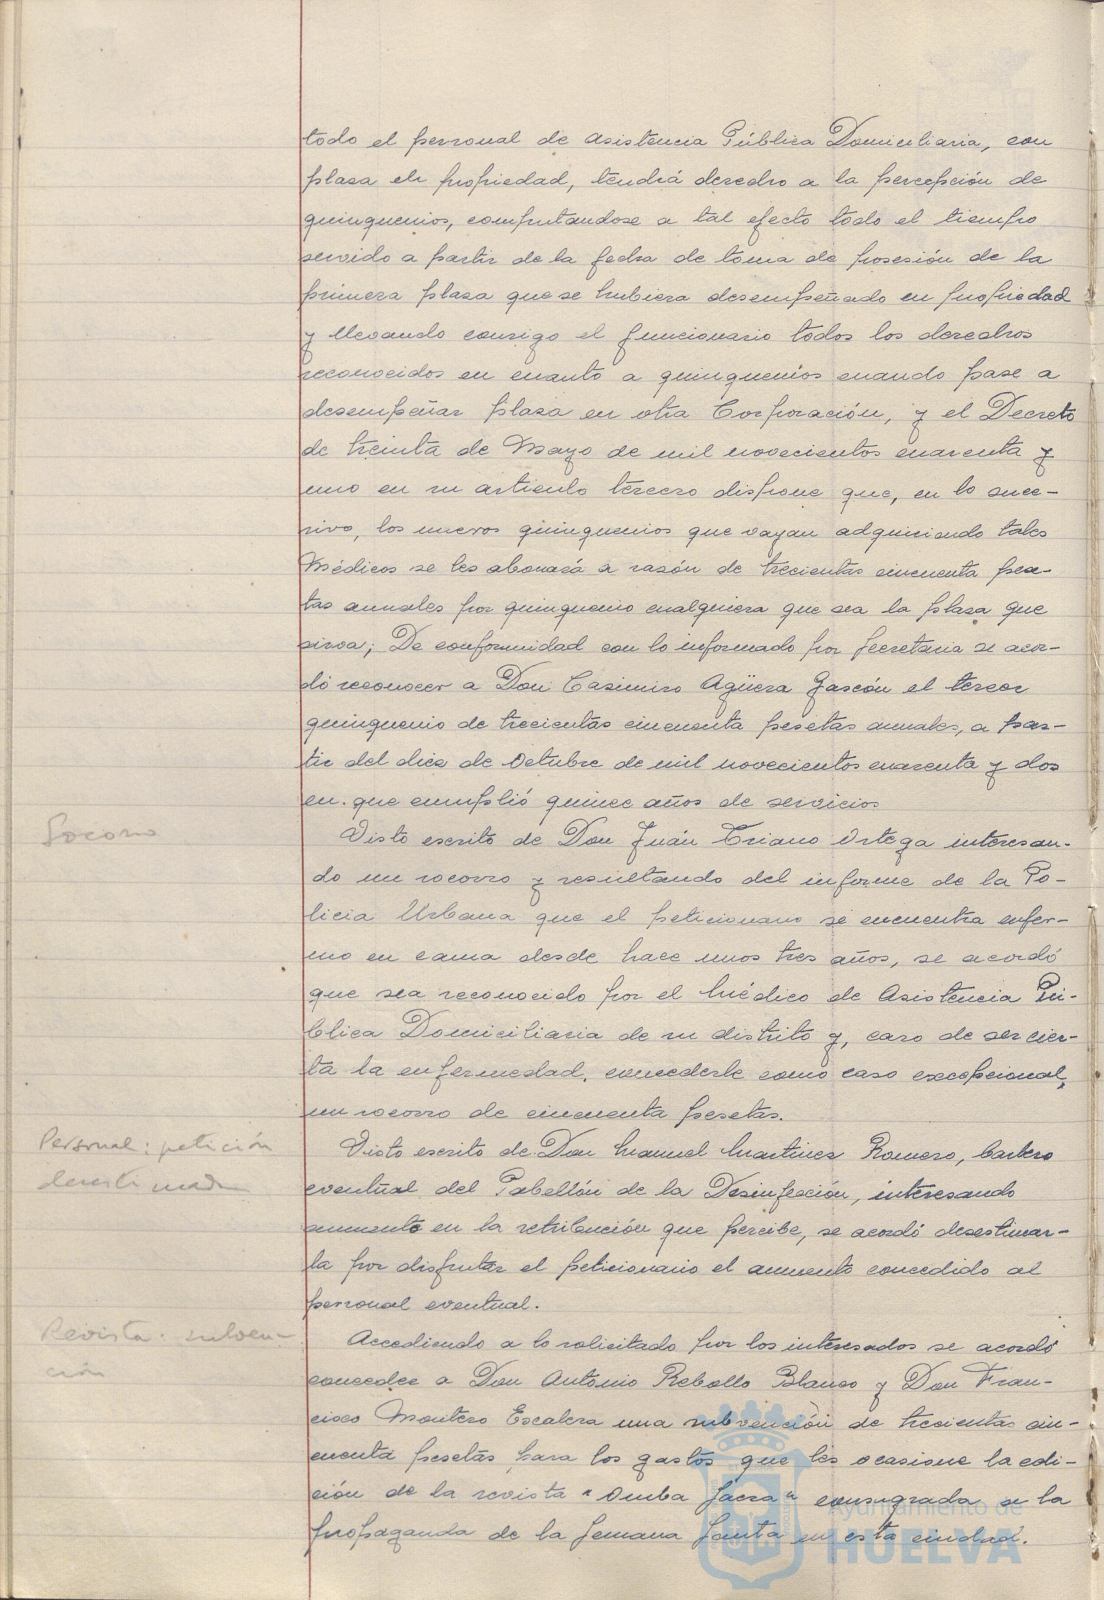 todo el personal de Asistencia Pública Domiciliaria, con
plasa en propiedad, tendrá derecho a la percepción de
quinquenios, computandose a tal efecto todo el tiempo
servido a partir de la fecha de toma de posesión de la
primera plasa que se hubiera desempeñado en propiedad
y llevando consigo el funcionario todos los derechos
reconocidos en cuanto a quinquenios cuando pase a
desempeñar plasa en otra Corporación, y el Decreto
de treinta de Mayo de mil novecientos cuarenta y
uno en su articulo tercero dispone que, en lo suce-
sivo, los nuevos quinquenios que vayan adquiriendo tales
Médicos se les abonará a rasón de trecientas cincuenta pese-
tas anuales por quinquenio cualquiera que sea la plasa que
sirva; De conformidad con lo informado por Secretaria se acor-
dó reconocer a Don Casimiro Agüera Gascón el tercer
quinquenio de trecientas cincuenta pesetas anuales, a par-
tir del dies de Octubre de mil novecientos cuarenta y dos
en que cumplió quince años de servicios
Socorro
Visto escrito de Don Juán Triano Ortega interesan-
do un socorro y resultando del informe de la Po-
licia Urbana que el peticionario se encuentra enfer-
mo en cama desde hace unos tres años, se acordó
que sea reconocido por el Médico de Asistencia Pú-
blica Domiciliaria de su distrito y, caso de ser cier-
ta la enfermedad, concederle como caso excepcional,
un socorro de cincuenta pesetas.
Personal: petición
desestimada
Visto escrito de Don Manuel Martines Romero, barbero
eventual del Pabellón de la Desinfección, interesando
aumento en la retribución que percibe, se acordó desestimar-
la por disfrutar el peticionario el aumento concedido al
personal eventual.
Revista: subven-
ción
Accediendo a lo solicitado por los interesados se acordó
conceder a Don Antonio Rebollo Blanco y Don Fran-
cisco Montero Escalera una subvención de trecientas cin-
cuenta pesetas para los gastos que les ocasione la edi-
ción de la revista "Onuba Sacra" consagrada a la
propaganda de la Semana Santa en esta ciudad.
Ayuntamiento de
HUELVA